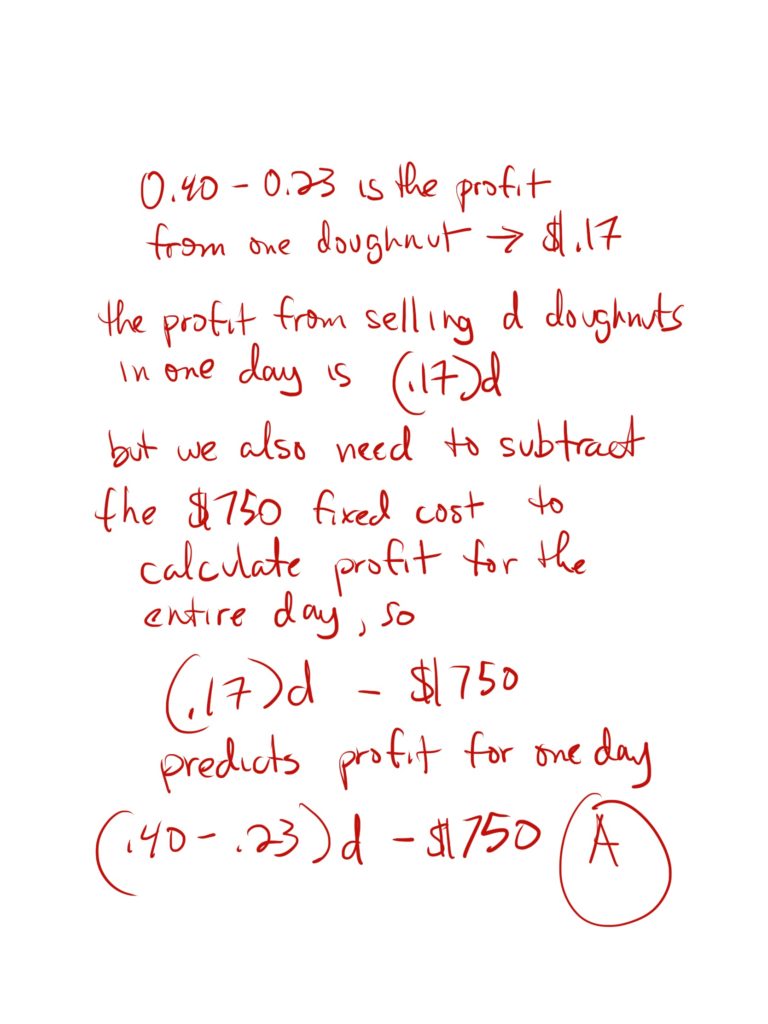 0.40 - 0.23 is the profit
from one doughnut → $.17
the profit from selling d doughnuts
in one day is (.17)d
but we also need to subtract
the $750 fixed cost to
calculate profit for the
entire day, so
(.17)d - $750
predicts profit for one day
(.40 - .23)d - $750 A